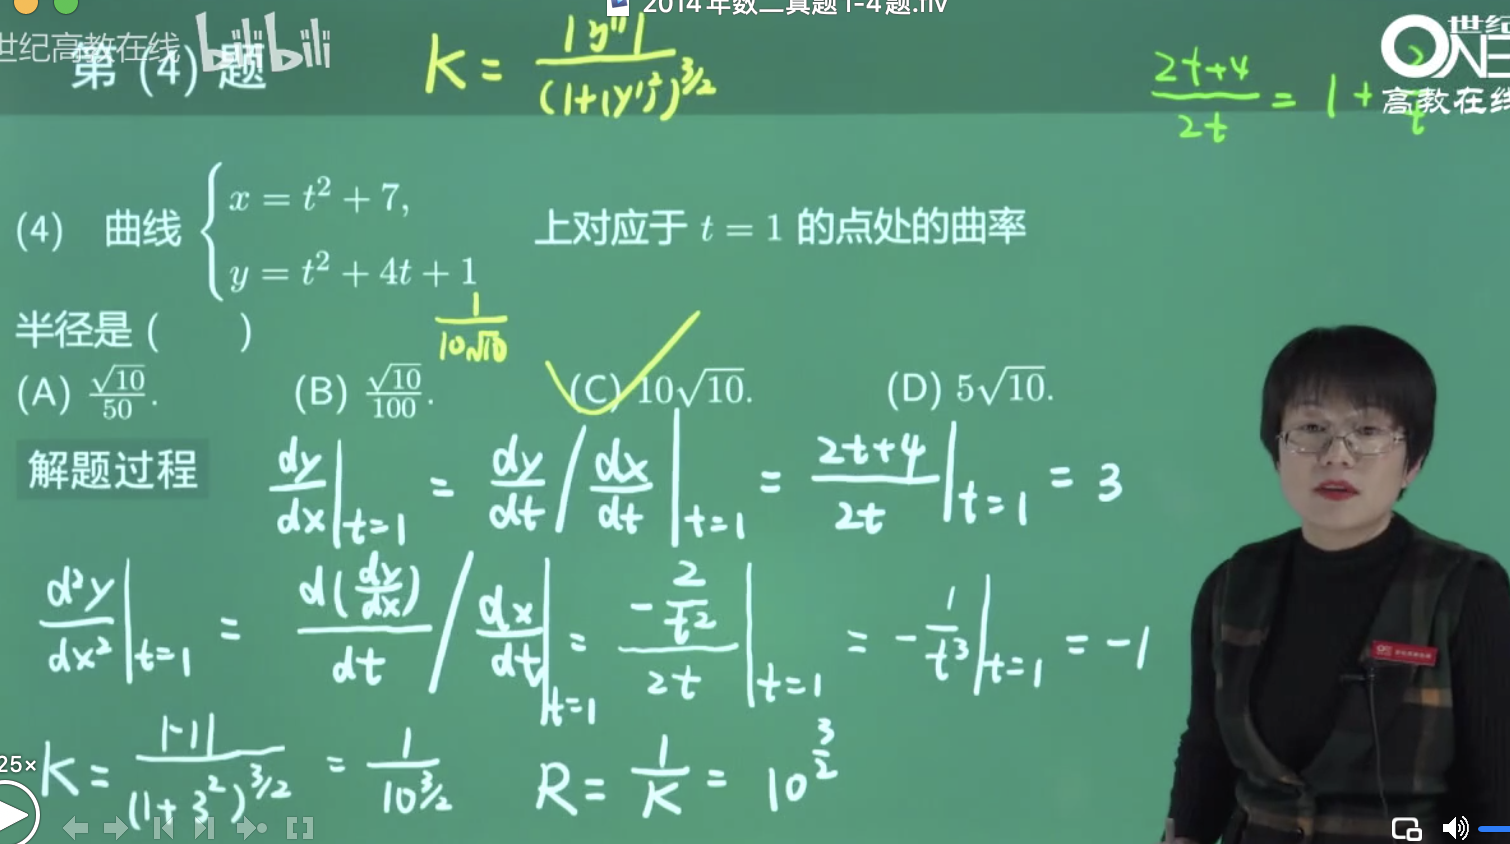 2014年数二真题1-4题.flv
世纪高教在线 bilibili
第(4)题
K = |y''| / (1+(y')²)^{3/2}
(2t+4)/(2t) = 1 + 2/t
世纪
ONE
高教在线
(4) 曲线 { x = t² + 7,
y = t² + 4t + 1
上对应于 t = 1 的点处的曲率
半径是 ( )
1/(10√10)
(A) √10/50. (B) √10/100. (C) 10√10. (D) 5√10.
解题过程
dy/dx |t=1 = dy/dt / dx/dt |t=1 = (2t+4)/(2t) |t=1 = 3
d²y/dx² |t=1 = d(dy/dx)/dt / dx/dt |t=1 = (-2/t²)/(2t) |t=1 = -1/t³ |t=1 = -1
K = |-1| / (1+3²)^{3/2} = 1/10^{3/2} R = 1/K = 10^{3/2}
25×